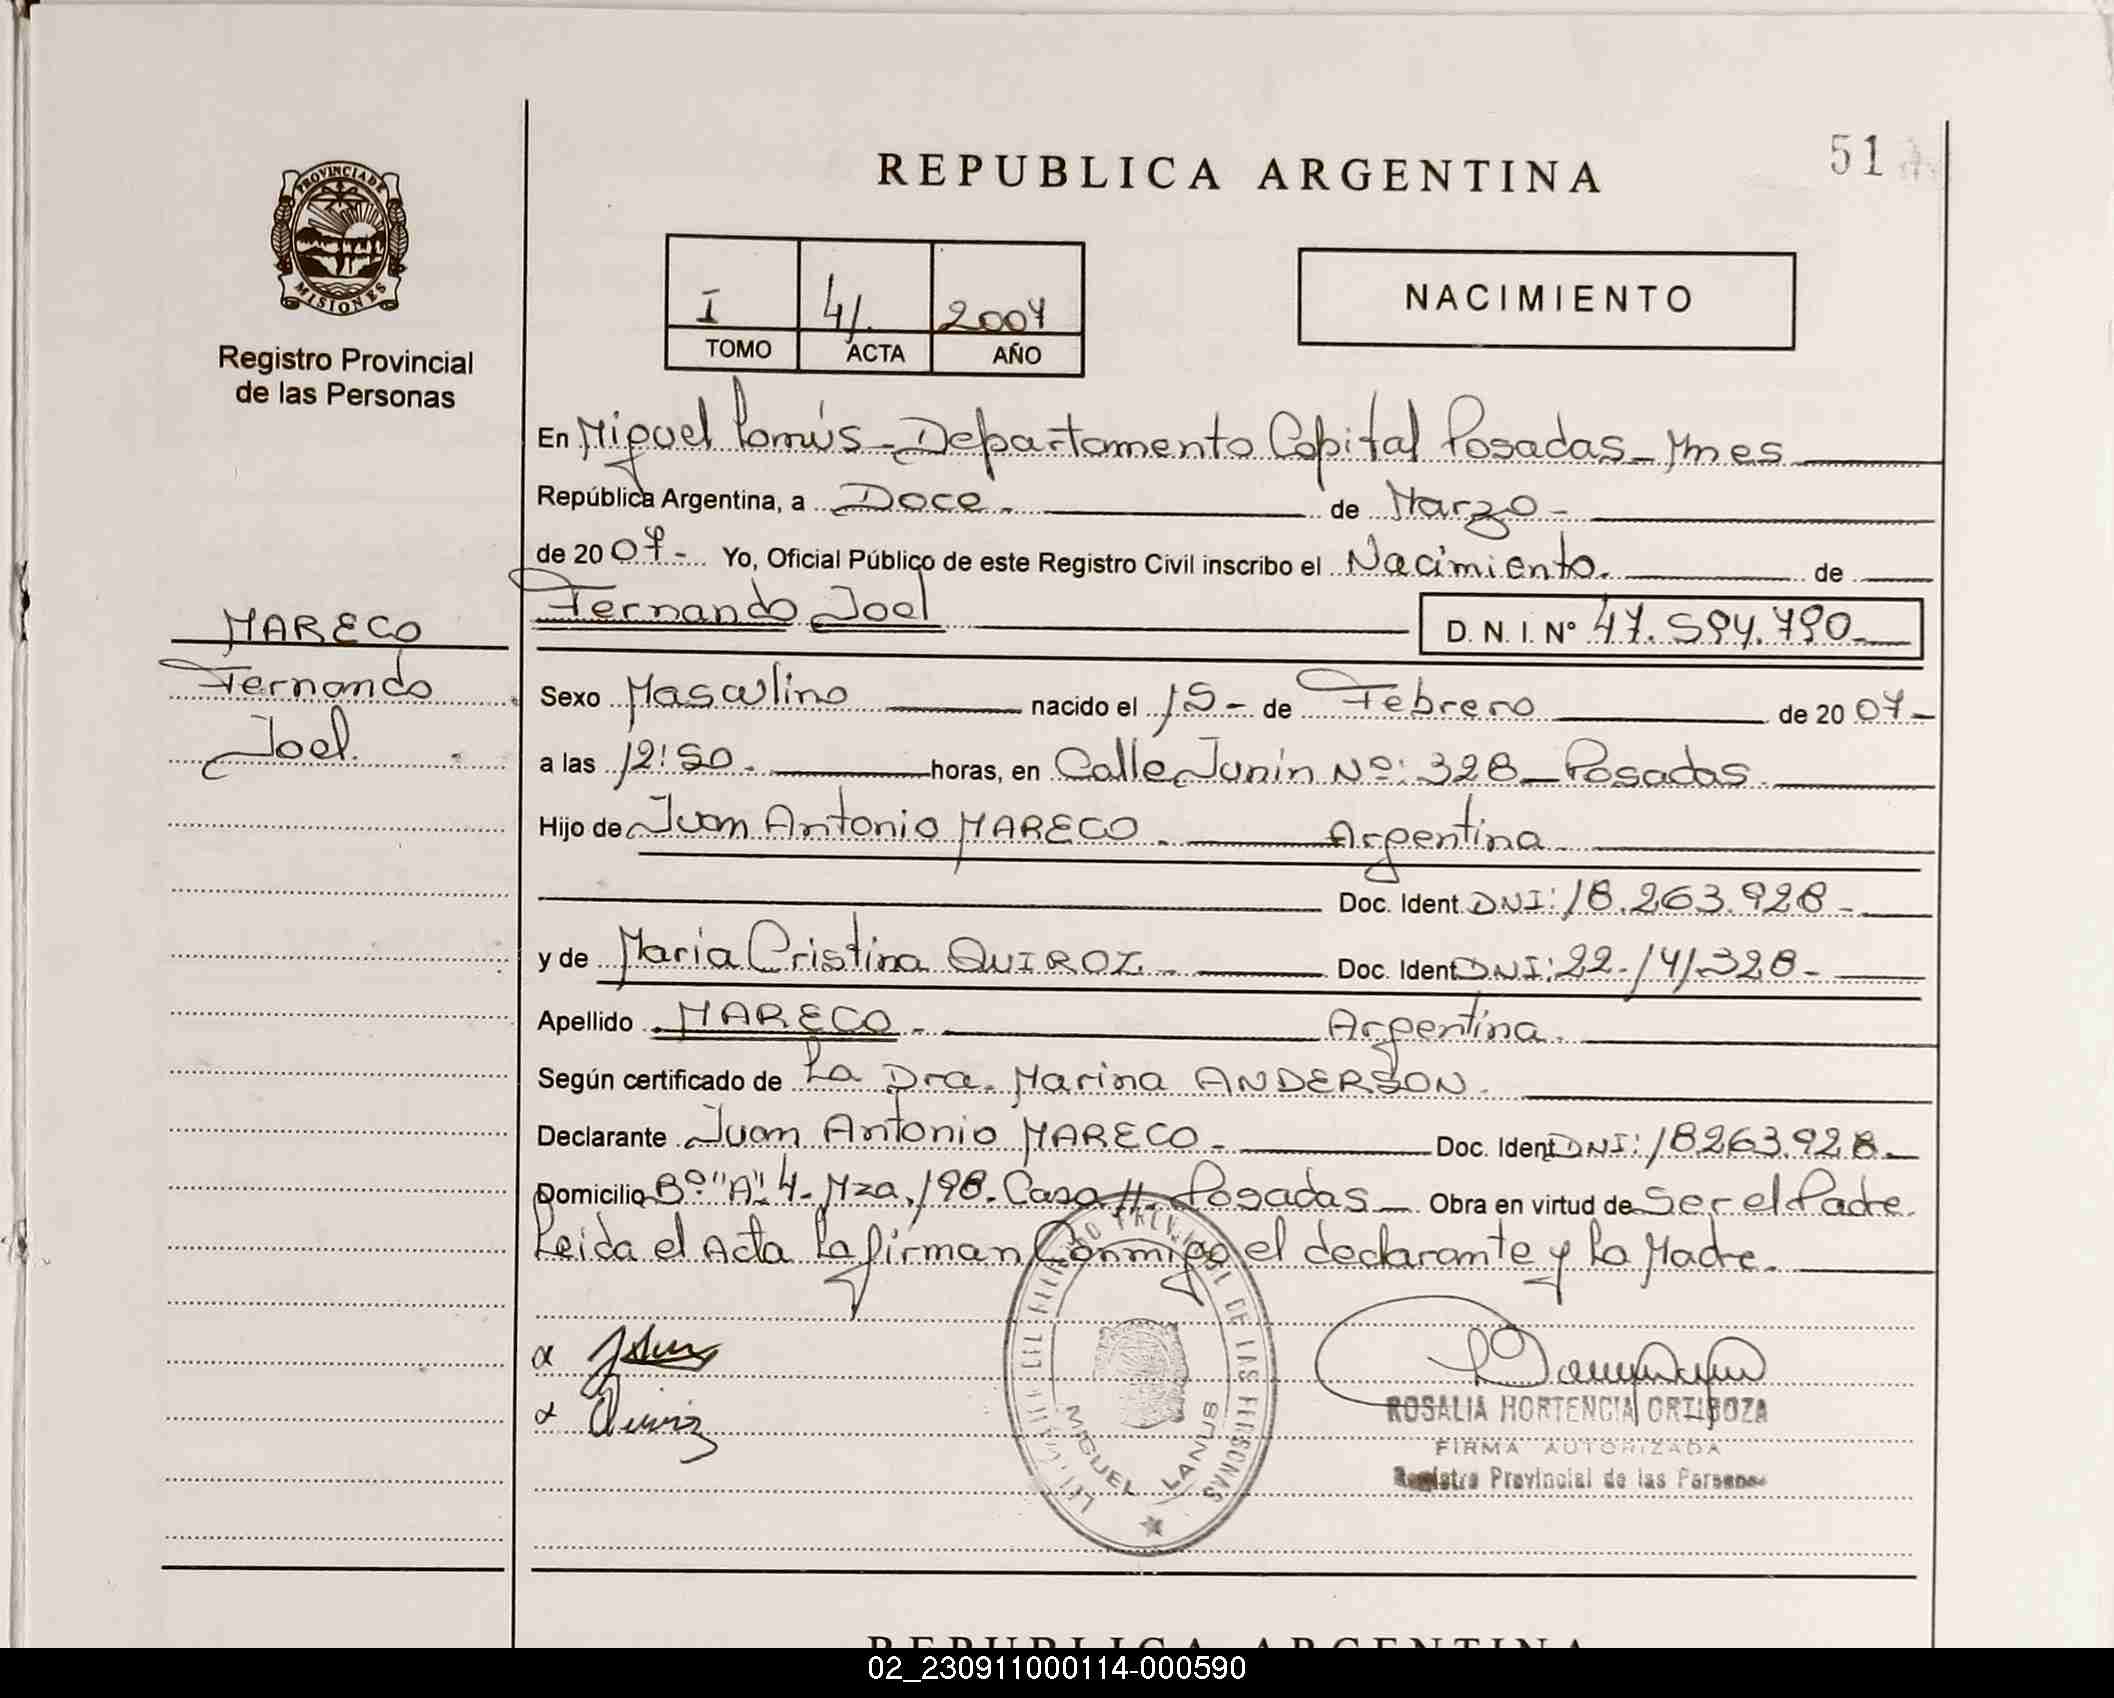 REPUBLICA ARGENTINA
51
PROVINCIA DE
MISIONES
Registro Provincial
de las Personas
I 4/. 2007
TOMO ACTA AÑO
NACIMIENTO
En Miguel Lanús - Departamento Capital Posadas - Mnes
República Argentina, a Doce - de Marzo -
de 2007 - Yo, Oficial Público de este Registro Civil inscribo el Nacimiento. de
Fernando Joel D. N. I. Nº 47.594.790-
MARECO
Fernando
Joel.
Sexo Masculino nacido el 15 - de Febrero de 2007 -
a las 12:50. horas, en Calle Junin Nº: 328 - Posadas.
Hijo de Juan Antonio MARECO. Argentina
Doc. Ident. DNI: 18.263.928 -
y de María Cristina QUIROZ. Doc. Ident. DNI: 22.141328 -
Apellido MARECO - Argentina.
Según certificado de La Dra. Marina ANDERSON.
Declarante Juan Antonio MARECO - Doc. Ident. DNI: 18.263.928 -
Domicilio Bº "A" 4 - Mza. 198. Casa 11 - Posadas - Obra en virtud de Ser el Padre.
Leida el Acta La firman Conmigo el declarante y La Madre.
DE LAS PERSONAS
MIGUEL LANUS
Quiroz
ROSALIA HORTENCIA ORTIGOZA
FIRMA AUTORIZADA
Registro Provincial de las Personas
REPUBLICA ARGENTINA
02_230911000114-000590